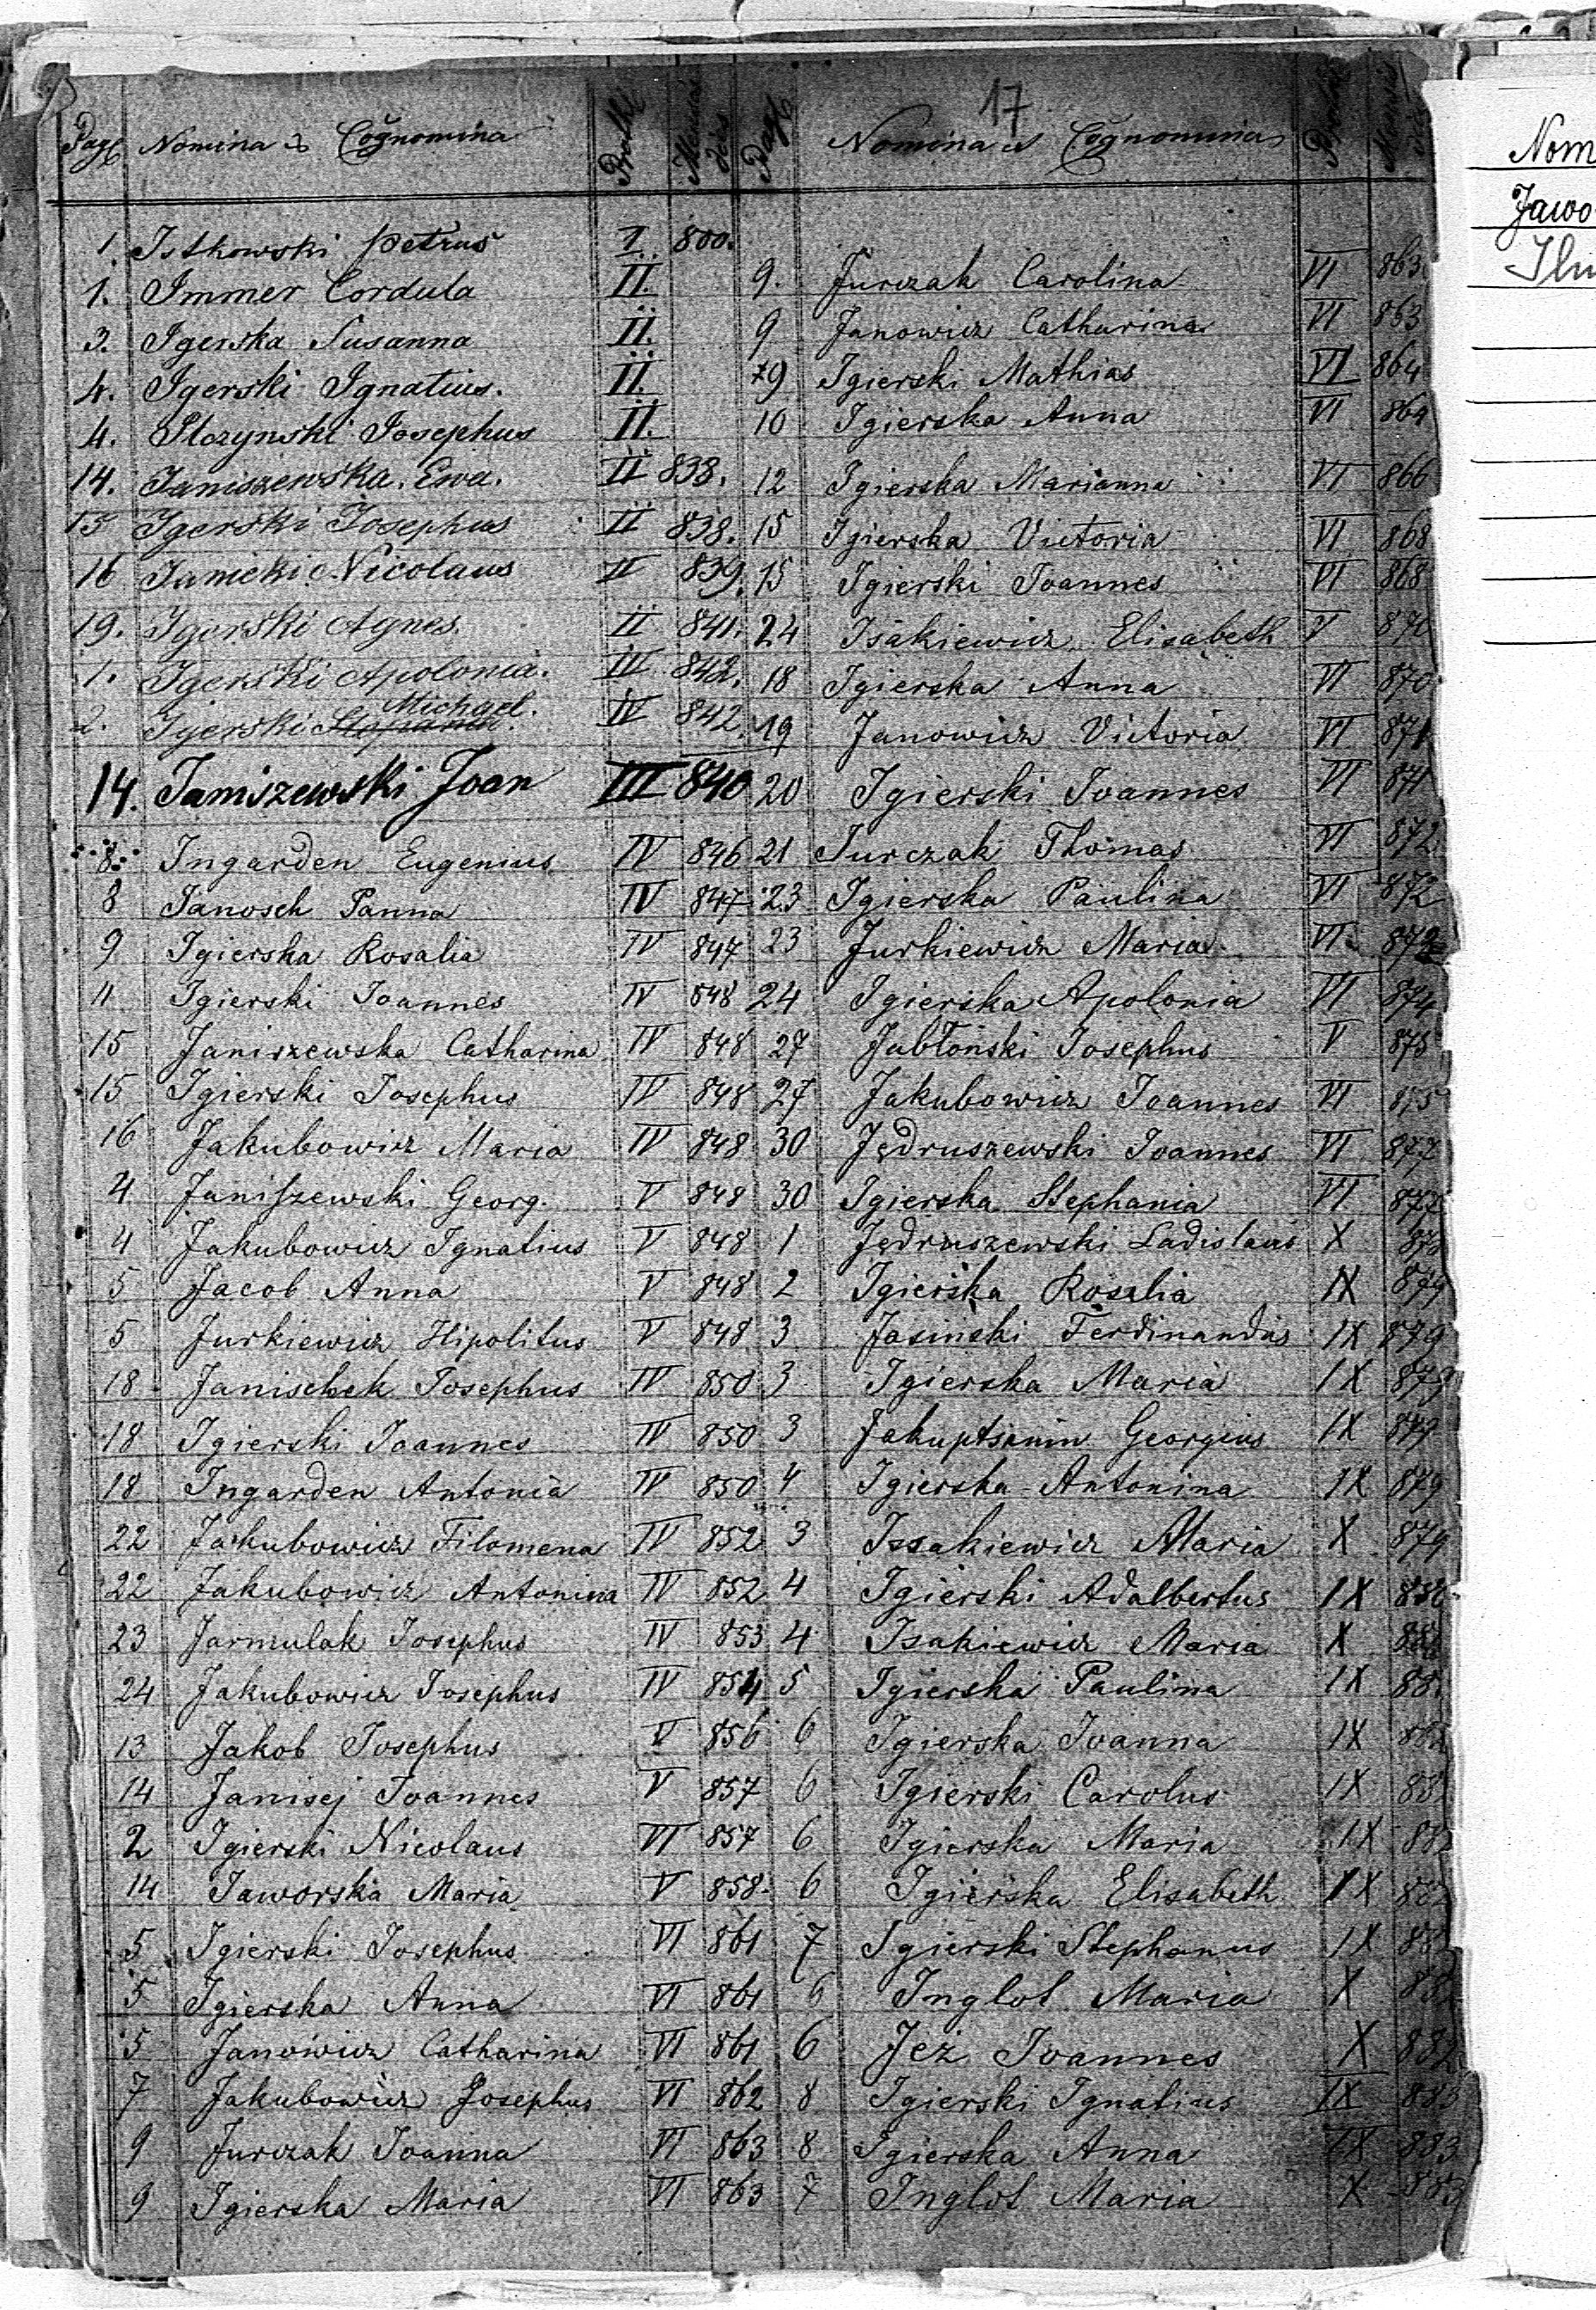 17
Pag Nomina et Cognomina Protk Mensis dies
1. Isthowski Petrus I 800.
1. Immer Cordula II.
3. Igerska Susanna II.
4. Igerski Ignatius. II.
4. Ilczynski Josephus II.
14. Janiszewska Ewa. II 838.
15 Igerski Josephus II 838.
16 Janicki Nicolaus II 839.
19. Igerski Agnes. II 841.
1. Igerski Apolonia. III 842.
2. Igerski Michael. IV 842.
14. Janiszewski Joan III 840
8. Ingarden Eugenius IV 846
8 Janosch Panna IV 847
9 Igierska Rosalia IV 847
11 Igierski Joannes IV 848
15 Janiszewska Catharina IV 848
15 Igierski Josephus IV 848
16 Jakubowicz Maria IV 848
4 Janiszewski Georg. V 848
4 Jakubowicz Ignatius V 848
5 Jacob Anna V 848
5 Jurkiewicz Hipolitus V 848
18 Janischek Josephus IV 850
18 Igierski Joannes IV 850
18 Ingarden Antonia IV 850
22 Jakubowicz Filomena IV 852
22 Jakubowicz Antonina IV 852
23 Jarmulak Josephus IV 853
24 Jakubowicz Josephus IV 854
13 Jakob Josephus V 856
14 Janisej Joannes V 857
2 Igierski Nicolaus VI 857
14 Jaworska Maria V 858.
5 Igierski Josephus VI 861
5 Igierska Anna VI 861
5 Janowicz Catharina VI 861
7 Jakubowicz Josephus VI 862
9 Jurczak Joanna VI 863
9 Igierska Maria VI 863
Pag Nomina et Cognomina
9. Jurczak Carolina VI 863
9 Janowicz Catharina VI 863
9 Igierski Mathias VI 864
10 Igierska Anna VI 864
12 Igierska Marianna VI 866
15 Igierska Victoria VI 868
15 Igierski Joannes VI 868
24 Isakiewicz Elisabeth V 870
18 Igierska Anna VI 870
19 Janowicz Victoria VI 871
20 Igierski Joannes VI 871
21 Jurczak Thomas VI 872
23 Igierska Paulina VI 872
23 Jurkiewicz Maria VI 873
24 Igierska Apolonia VI 874
27 Jabłoński Josephus V 875
27 Jakubowicz Joannes VI 875
30 Jędruszewski Joannes VI 877
30 Igierska Stephania VI 877
1 Jędruszewski Ladislaus X
2 Igierska Rosalia IX 879
3 Jasinski Ferdinandus IX 879
3 Igierska Maria IX 879
3 Jakuptsanin Georgius IX 879
4 Igierska Antonina IX 879
3 Issakiewicz Maria X 879
4 Igierski Adalbertus IX
4 Isakiewicz Maria X
5 Igierska Paulina IX
6 Igierska Joanna IX
6 Igierski Carolus IX
6 Igierska Maria IX 882
6 Igierska Elisabeth IX 882
7 Igierski Stephanus IX
6 Inglot Maria X 882
6 Jeż Joannes X 882
8 Igierski Ignatius IX 883
8 Igierska Anna IX 883
7 Inglot Maria X 883
Nom
Jawo